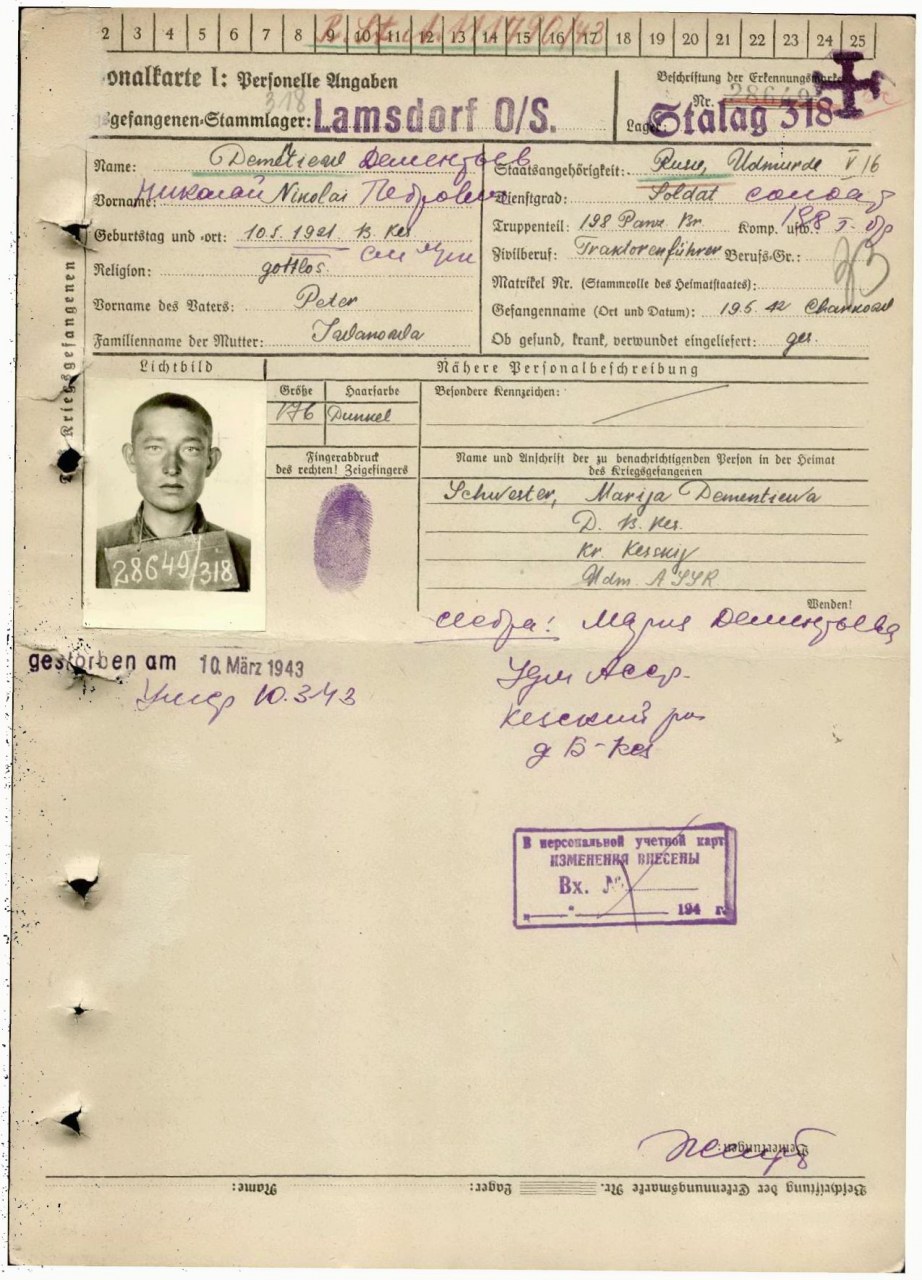 2 3 4 5 6 7 8 9 10 11 12 13 14 15 16 17 18 19 20 21 22 23 24 25
onalkarte I: Personelle Angaben
Beschriftung der Erkennungsmarke
318
Nr. 28649
gefangenen-Stammlager: Lamsdorf O/S.
Lager: Stalag 318
Name: Дементьев
Staatsangehörigkeit: Russe, Udmurde V 16
Vorname: Николай Nikolai Петрович
Dienstgrad: Soldat солдат
Truppenteil: 198 Panz Br Komp. usw.: 198 т. бр
Geburtstag und -ort: 10.5.1921. B. Kes
Zivilberuf: Traktorenführer Berufs-Gr.:
Religion: gottlos
Matrikel Nr. (Stammrolle des Heimatstaates):
Vorname des Vaters: Peter
Gefangennahme (Ort und Datum): 19.5.42 Charkow
Familienname der Mutter: Iwanowa
Ob gesund, krank, verwundet eingeliefert: ges.
Kriegsgefangenen
Lichtbild
Nähere Personalbeschreibung
Größe Haarfarbe
Besondere Kennzeichen:
176 Dunkel
Fingerabdruck
des rechten! Zeigefingers
Name und Anschrift der zu benachrichtigenden Person in der Heimat
des Kriegsgefangenen
Schwester, Marija Dementiewa
D. B. Kes.
Kr. Kesskij
Udm. ASSR
28649/318
Wenden!
сестра: Мария Дементьева
gestorben am 10. März 1943
Удм Асср.
Умер 10.3.43
Кезский
д Б-Кез
В персональной учетной карт
ИЗМЕНЕНИЯ ВНЕСЕНЫ
Вх. №
" " 194 г.
Bemerkungen:
Beschriftung der Erkennungsmarke Nr. Lager: Name: